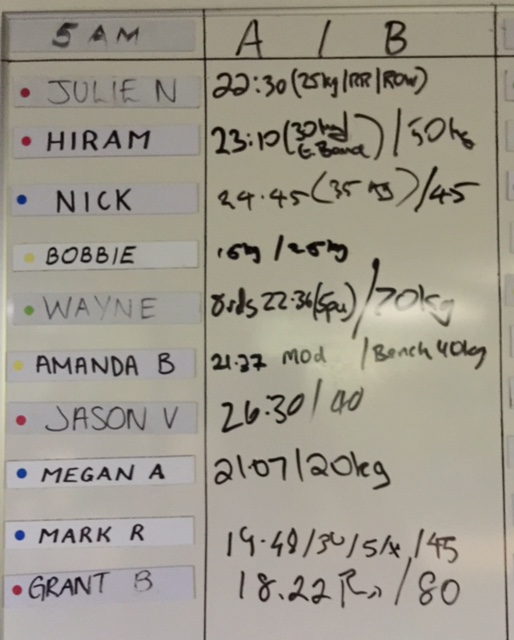 5 AM A / B
JULIE N 22:30 (25kg/RR/ROW)
HIRAM 23:10 (30kg / 50kg
G Band)
NICK 24.45 (35 kg) /45
BOBBIE 15kg / 25kg
WAYNE 8rds 22.36 /70kg
AMANDA B 21.37 MOD / Bench 40kg
JASON V 26:30 / 40
MEGAN A 21.07 / 20kg
MARK R 19.48 / 30 / /45
GRANT B 18.22 / 80